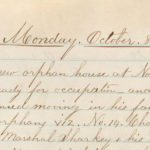 Monday. October. 8
new orphan house at No
ready for occupation and
moving in his fa
orphans viz. No. 14. Cha
Marshal Sharkey & his